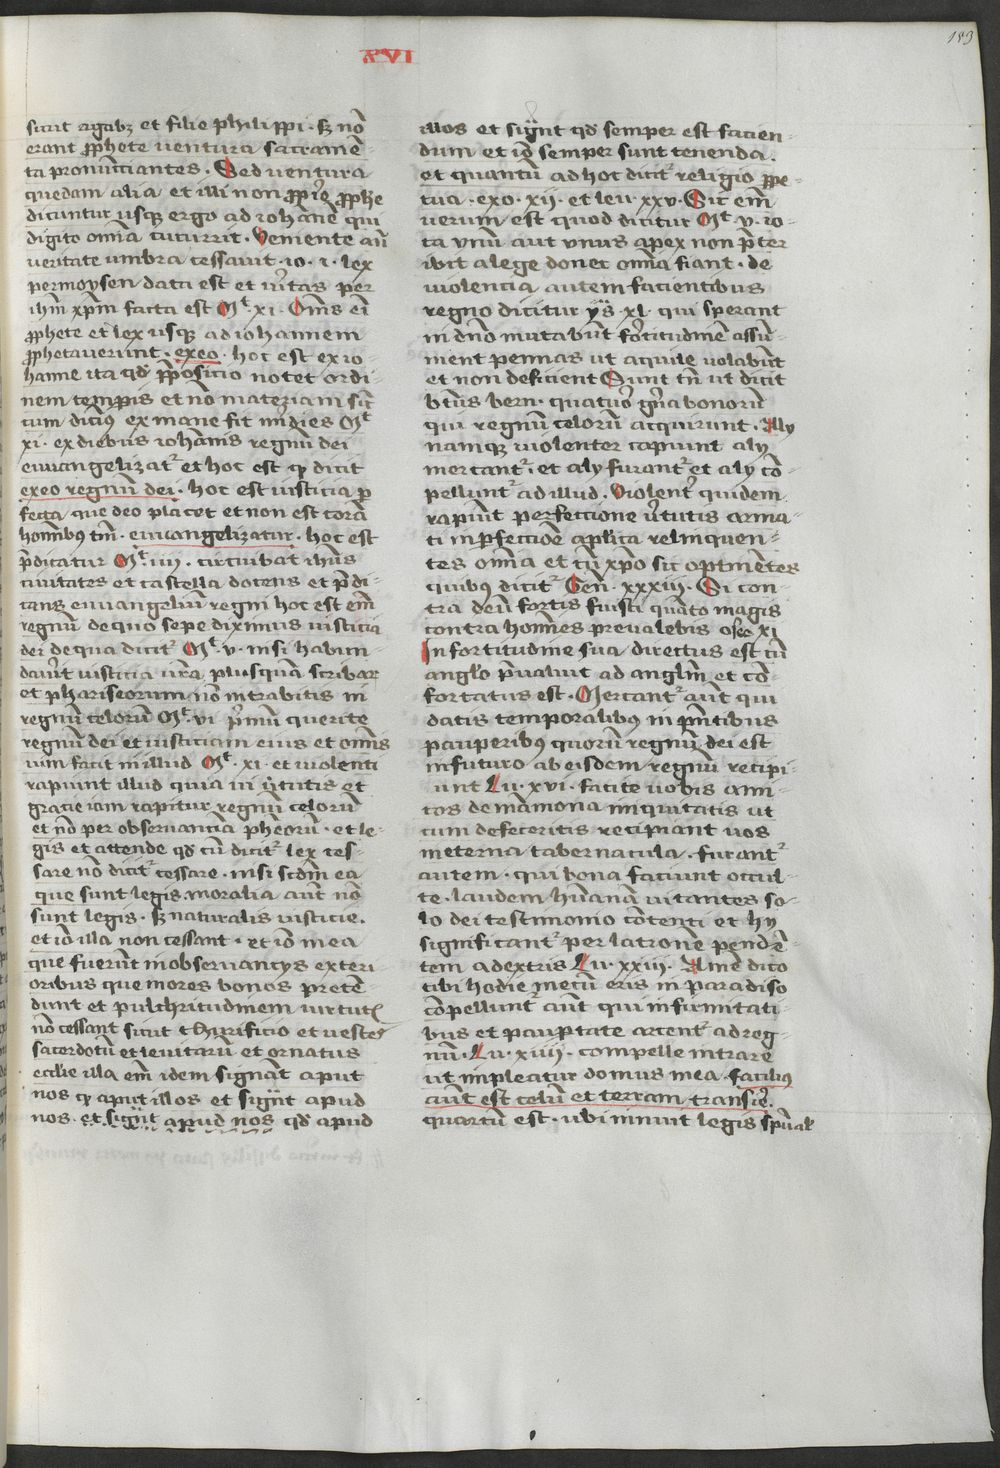 153
XVI
sicut agabꝫ et filie philippi · sꝫ nō
erant ꝓphete ventura sacramē-
ta pronunciantes · Sed ventura
quedam alia et illi non ꝓprie ꝓphe
dicuntur usqꝫ ergo ad iohānē qui
digito om̄ia cucurrit · Veniente aūt
veritate umbra cessauit · io · i · lex
per moysen data est et v̄itas per
ihm̄ xp̄m facta est Mᵗ · xi · Om̄s ei̅
ꝓphete et lex usqꝫ ad iohannem
ꝓphetauerunt · exeo · hoc est ex io-
hanne ita qd̄ p̄positio notet ordi-
nem tempꝑis et nō materiam sic̄
cum dicim⁹ ex mane fit m̄idies Mᵗ
xi · ex diebus iohānis regnū dei
euuangelizat² et hoc est qꝫ dicit
exeo regnū dei · hoc est iusticia ꝑ
fecta que deo placet et non est corā
hom̄ibus tm̄ · euuangelizatur · hoc est
p̄dicatur Mᵗ · iiii · circuibat ihūs
ciuitates et castella docens et p̄di-
cans euuangeliū regni hoc est em̄
regnū de quo sepe diximus iusticia
dei de qua dicit² Mᵗ · v · nisi habun-
dau̅it iusticia vr̄a plusquā scribar̄
et phariseorum nō intrabitis in
regnū celorū Mᵗ · vi p̄mū querite
regnū dei et iusticiam eius et om̄is
uim facit in illud Mᵗ · xi · et uiolenti
rapiunt illud quia iu v̄tutis et
gracie iam rapitur regnū celorū
et nō per obseruanciā ph̄eorū · et le-
gis et attende qd̄ cū dicit² lex ces-
sare nō dicit² cessare · nisi scd̄m ea
que sunt legis moralia aūt nō
sunt legis · sꝫ naturalis iusticie ·
et iō illa non cessant · et iō mea
que fuerūt in obseruancijs exteri-
oribus que mores bonos p̄ten-
dunt et pulchritudinem uirtut̄
nō cessant sicut thurificio et uestes
sacerdotū et leuitarū et ornatus
ecclie illa em̄ idem signāt aput
nos qꝫ aput illos et sigūt apud
nos · et sigūt apud nos qd̄ apud
illos et sigūnt qd̄ semper est facien-
dum et iō semper sunt tenenda ·
et quantū ad hoc dicit² religio ꝑpe-
tua · exo · xii · et leu · xxv · Sic em̄
uerum est quod dicitur Mᵗ · v · io-
ta vnū aut vnus apex non p̄ter
ibit a lege donec om̄ia fiant · de
uiolencia autem facientibus
regno dicitur ys̄ · xl · qui sperant
in dn̄o mutabūt fortitudinē assu-
ment pennas ut aquile uolabūt
et non deficient Sunt tn̄ ut dicit
bt̄us bern · quatuor gn̄a bonorū
qui regnū celorū acquirunt · Aly
namqꝫ uiolenter capiunt aly
mercant² · et aly furant² et aly cō-
pellunt² ad illud · Violent̄ quidem
rapiūt perfeccione v̄tutis arma-
ti in ꝑfectiōe aplica relinquen-
tes om̄ia et cū xp̄o sic optinētes
quibus dicit² Gen̄ · xxxiii · Si con-
tra deū fortis fuisti quāto magis
contra homīes preualebis osee xi
In fortitudine sua directus est cū
anglo p̄ualuit ad anglm̄ et cō-
fortatus est · Mercant² aūt qui
datis temporalibus in p̄ntibus
pauperibus quorū regnū dei est
in futuro ab eisdem regnū recipi-
unt Lu · xvi · facite uobis ami-
cos de māmona iniquitatis ut
cum defeceritis recipiant uos
in eterna tabernacula · furant²
autem · qui bona faciunt occul-
te · laudem hūanā uitantes so-
lo dei testimonio cōtenti et hy
significant² per latronē pendē-
tem a dextris Lu · xxiii · Amē dico
tibi hodie mecū eris in paradiso
cōpellunt² aūt qui infirmitati-
bus et pauꝑtate arcent² ad reg-
nū · Lu · xiiii · compelle intrare
ut impleatur domus mea · facilius
aūt est celū et terram transire ·
quartū est · ubi innuit legis sp̄ual